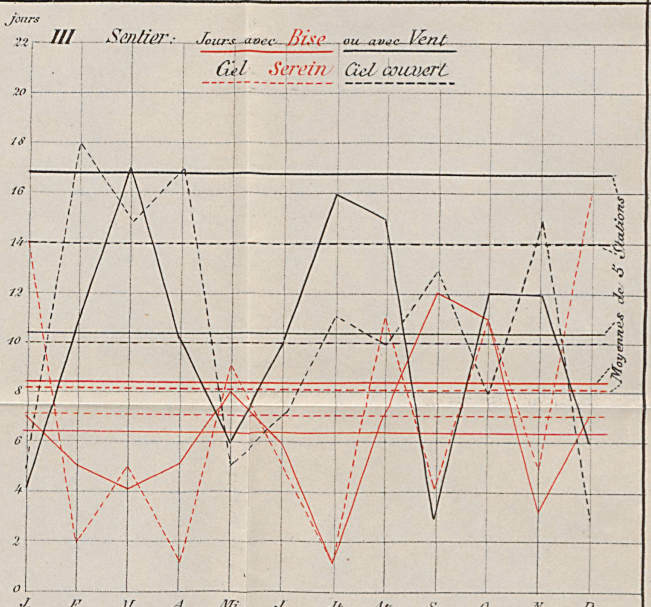 jours
22 III Sentier: Jours avec Bise ou avec Vent
Ciel Serein Ciel couvert
20
18
16
14
12
10
8
6
4
2
0
Moyennes de 5 Stations
J. F. M. A. Mi. J. Jt. At. S. O. N. D.